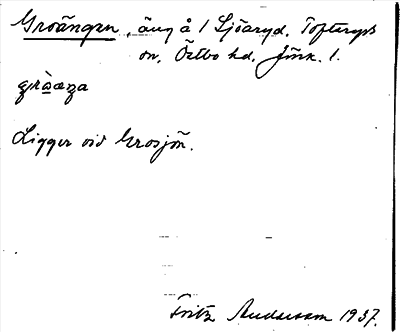 Groängen, äng å 1 Ljöaryd, Tofteryds
sn, Östbo hd, Jönk. l.
Ligger vid Grosjön.
Fritz Andersson 1937.